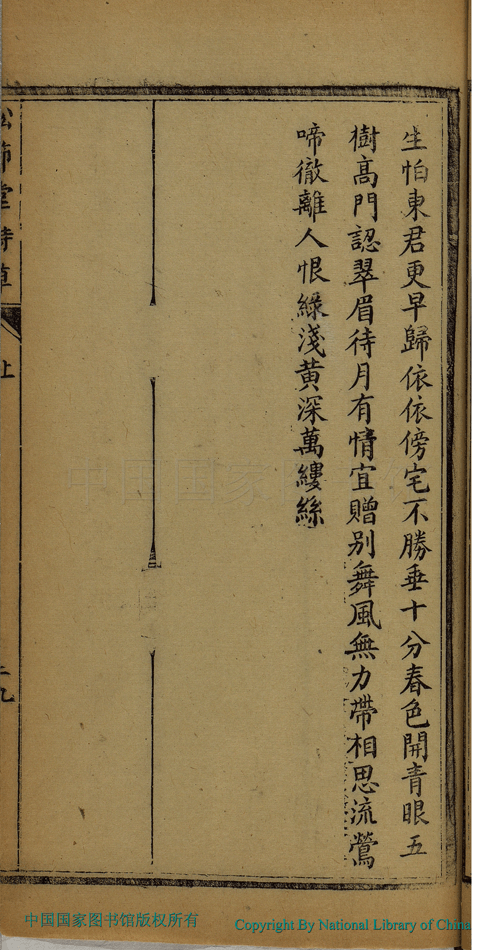 生怕東君更早歸依依傍宅不勝垂十分春色開青眼五
樹高門認翠眉待月有情宜贈别舞風無力帶相思流鶯
啼徹離人恨綠淺黃深萬縷絲
節堂詩草
上
中国国家图书馆版权所有
Copyright By National Library of China